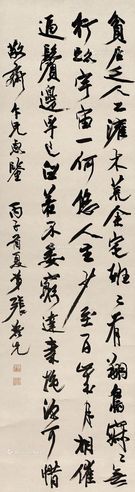 貧居乏人工灌木荒余宅班〻有翔鳥寂〻無
行跡宇宙一何悠人生少至百歲月相催
逼鬢邊早已白若不委窮達素抱深可惜
敬齋仁兄惠鑒 丙子首夏 弟張先